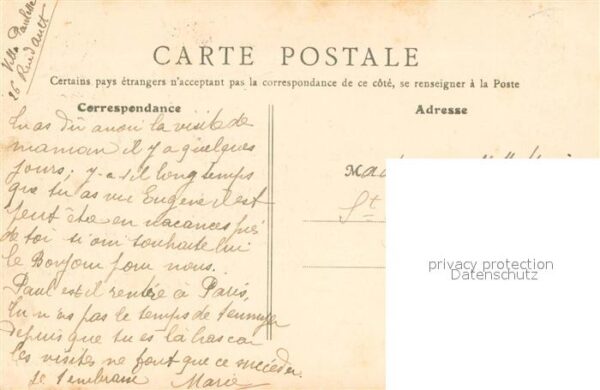 Villa Paulette
26 Rue d'ault
CARTE POSTALE
Certains pays étrangers n'acceptant pas la correspondance de ce côté, se renseigner à la Poste
Correspondance
Tu as dû avoir la visite de
maman il y a quelques
jours; y a-t-il longtemps
que tu as vu Eugène il est
peut être en vacances près
de toi si oui souhaite lui
le Bonjour pour nous.
Paul est il rentré à Paris,
tu n'as pas le temps de t'ennuyer
depuis que tu es là bas car
les visites ne font que ce succéder
je t'embrasse Marie
Adresse
St
privacy protection
Datenschutz